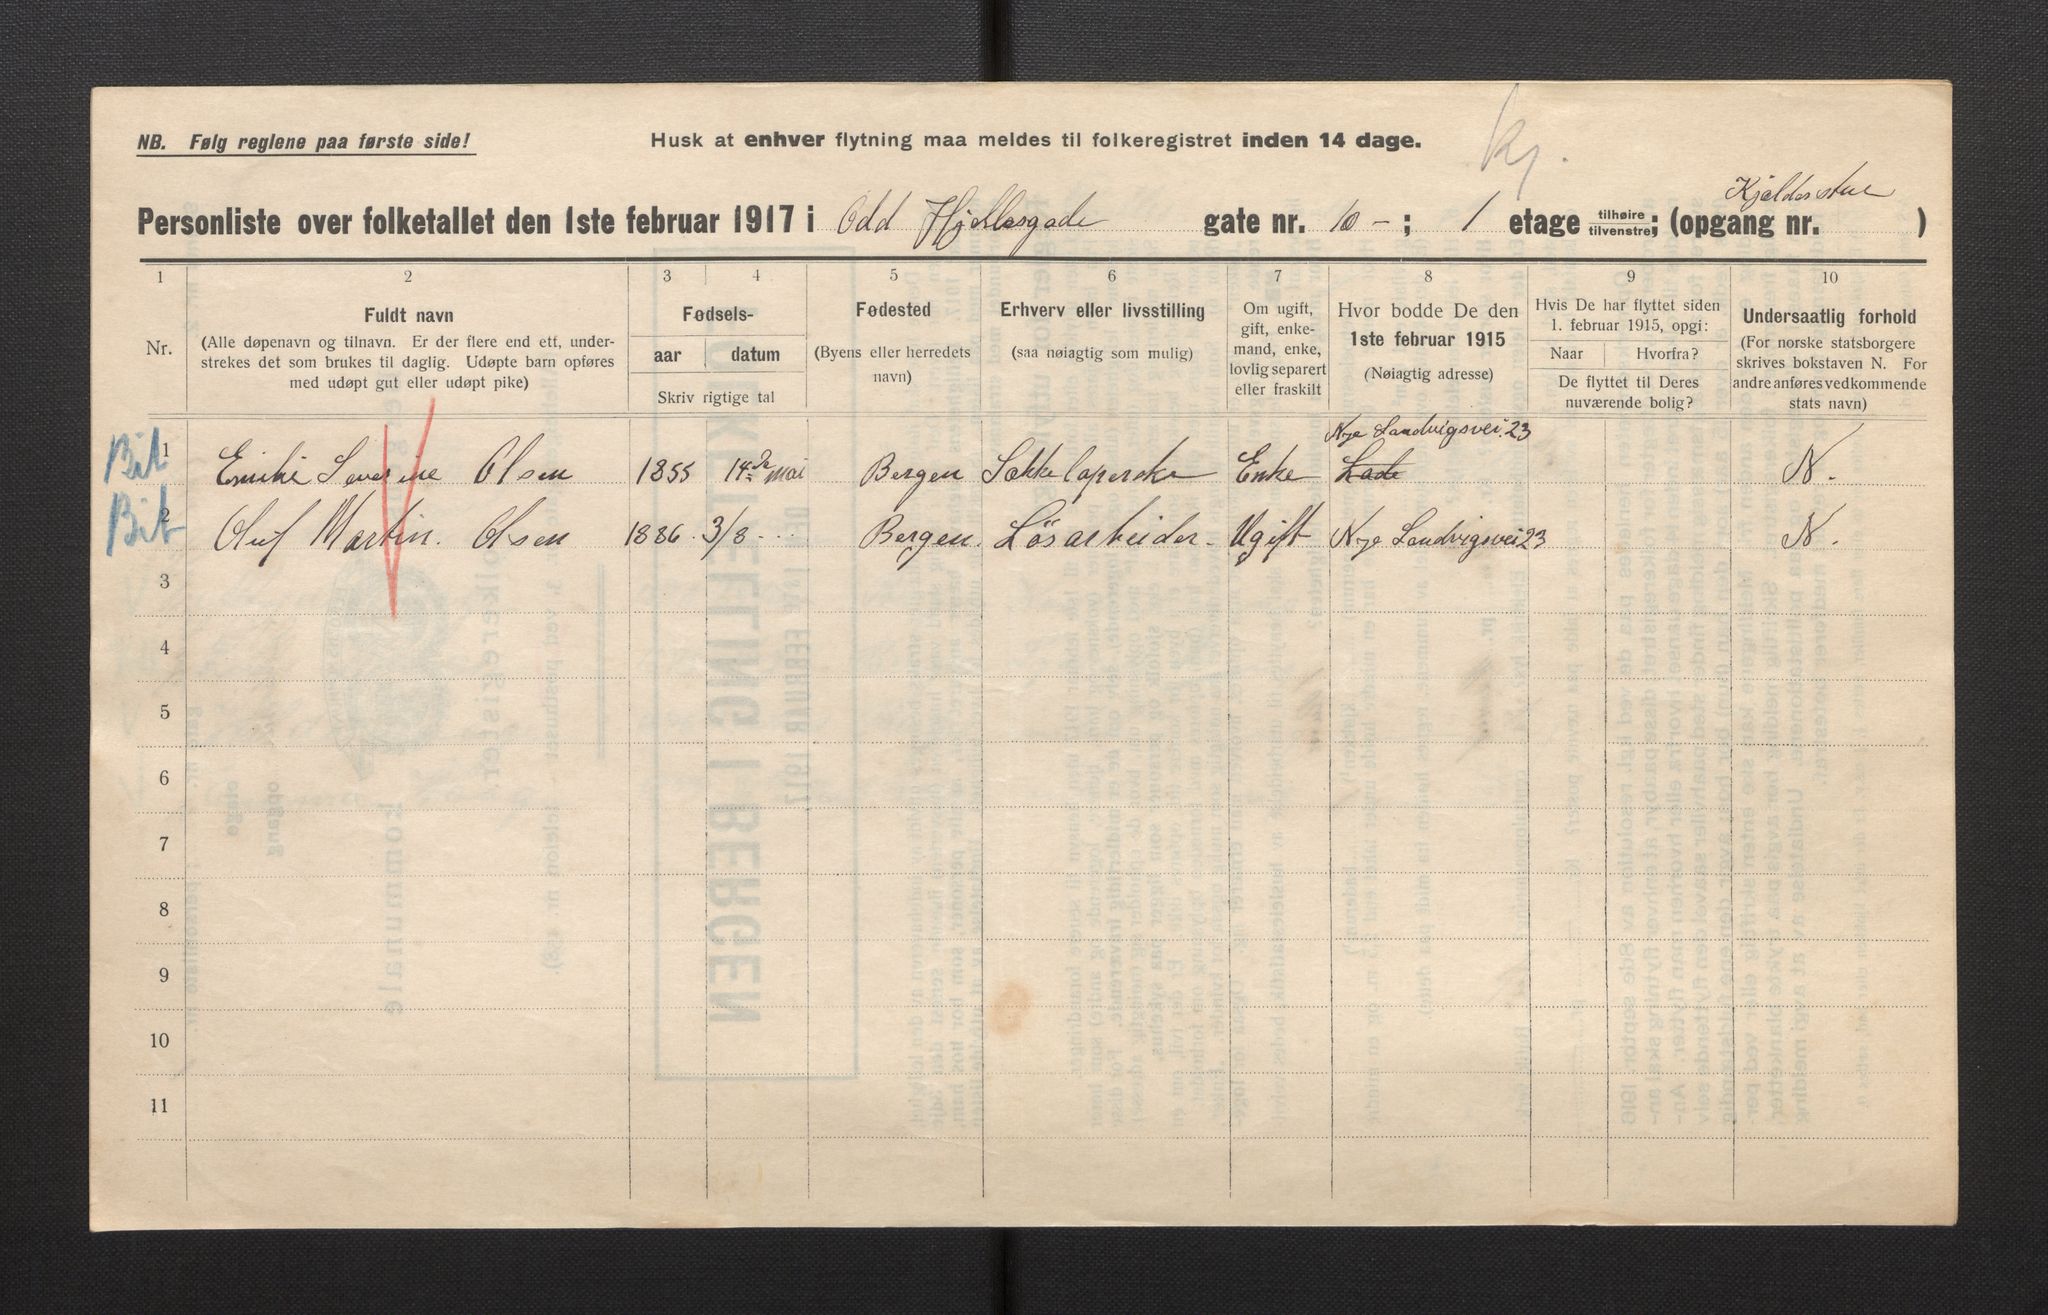 NB. Følg reglene paa første side!
Husk at enhver flytning maa meldes til folkeregistret inden 14 dage.
Kj.
Kjelderstue
Personliste over folketallet den 1ste februar 1917 i Odd Hjellesgade gate nr. 10 - ; 1 etage tilhøire tilvenstre; (opgang nr. )
1 2 3 4 5 6 7 8 9 10
Nr.
Fuldt navn
(Alle døpenavn og tilnavn. Er der flere end ett, under-
strekes det som brukes til daglig. Udøpte barn opføres
med udøpt gut eller udøpt pike)
Fødsels-
aar datum
Skriv rigtige tal
Fødested
(Byens eller herredets
navn)
Erhverv eller livsstilling
(saa nøiagtig som mulig)
Om ugift,
gift, enke-
mand, enke,
lovlig separert
eller fraskilt
Hvor bodde De den
1ste februar 1915
(Nøiagtig adresse)
Hvis De har flyttet siden
1. februar 1915, opgi:
Naar Hvorfra?
De flyttet til Deres
nuværende bolig?
Undersaatlig forhold
(For norske statsborgere
skrives bokstaven N. For
andre anføres vedkommende
stats navn)
Nye Sandvigsvei 23
Bit 1 Emilie Severine Olsen 1855 14de mai Bergen Enke Lade N.
Bit 2 Oluf Martin. Olsen 1886 3/8 Bergen. Løsarbeider Ugift Nye Sandvigsvei 23 N.
3
4
5
6
7
8
9
10
11